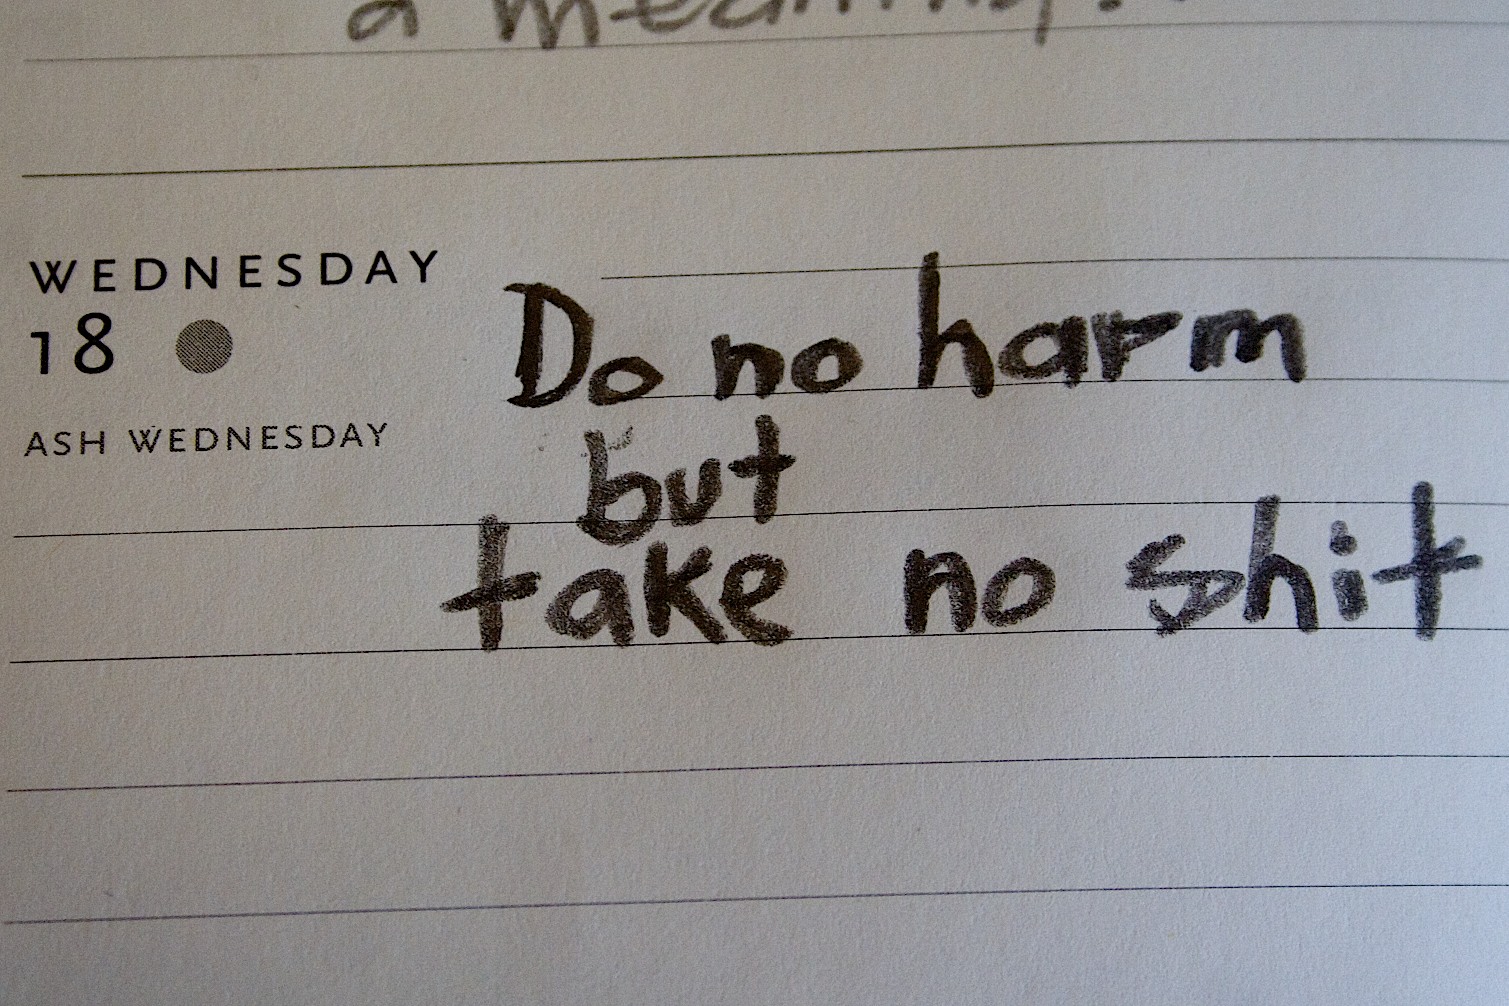 a meaning!
WEDNESDAY
18
ASH WEDNESDAY
Do no harm
but
take no shit